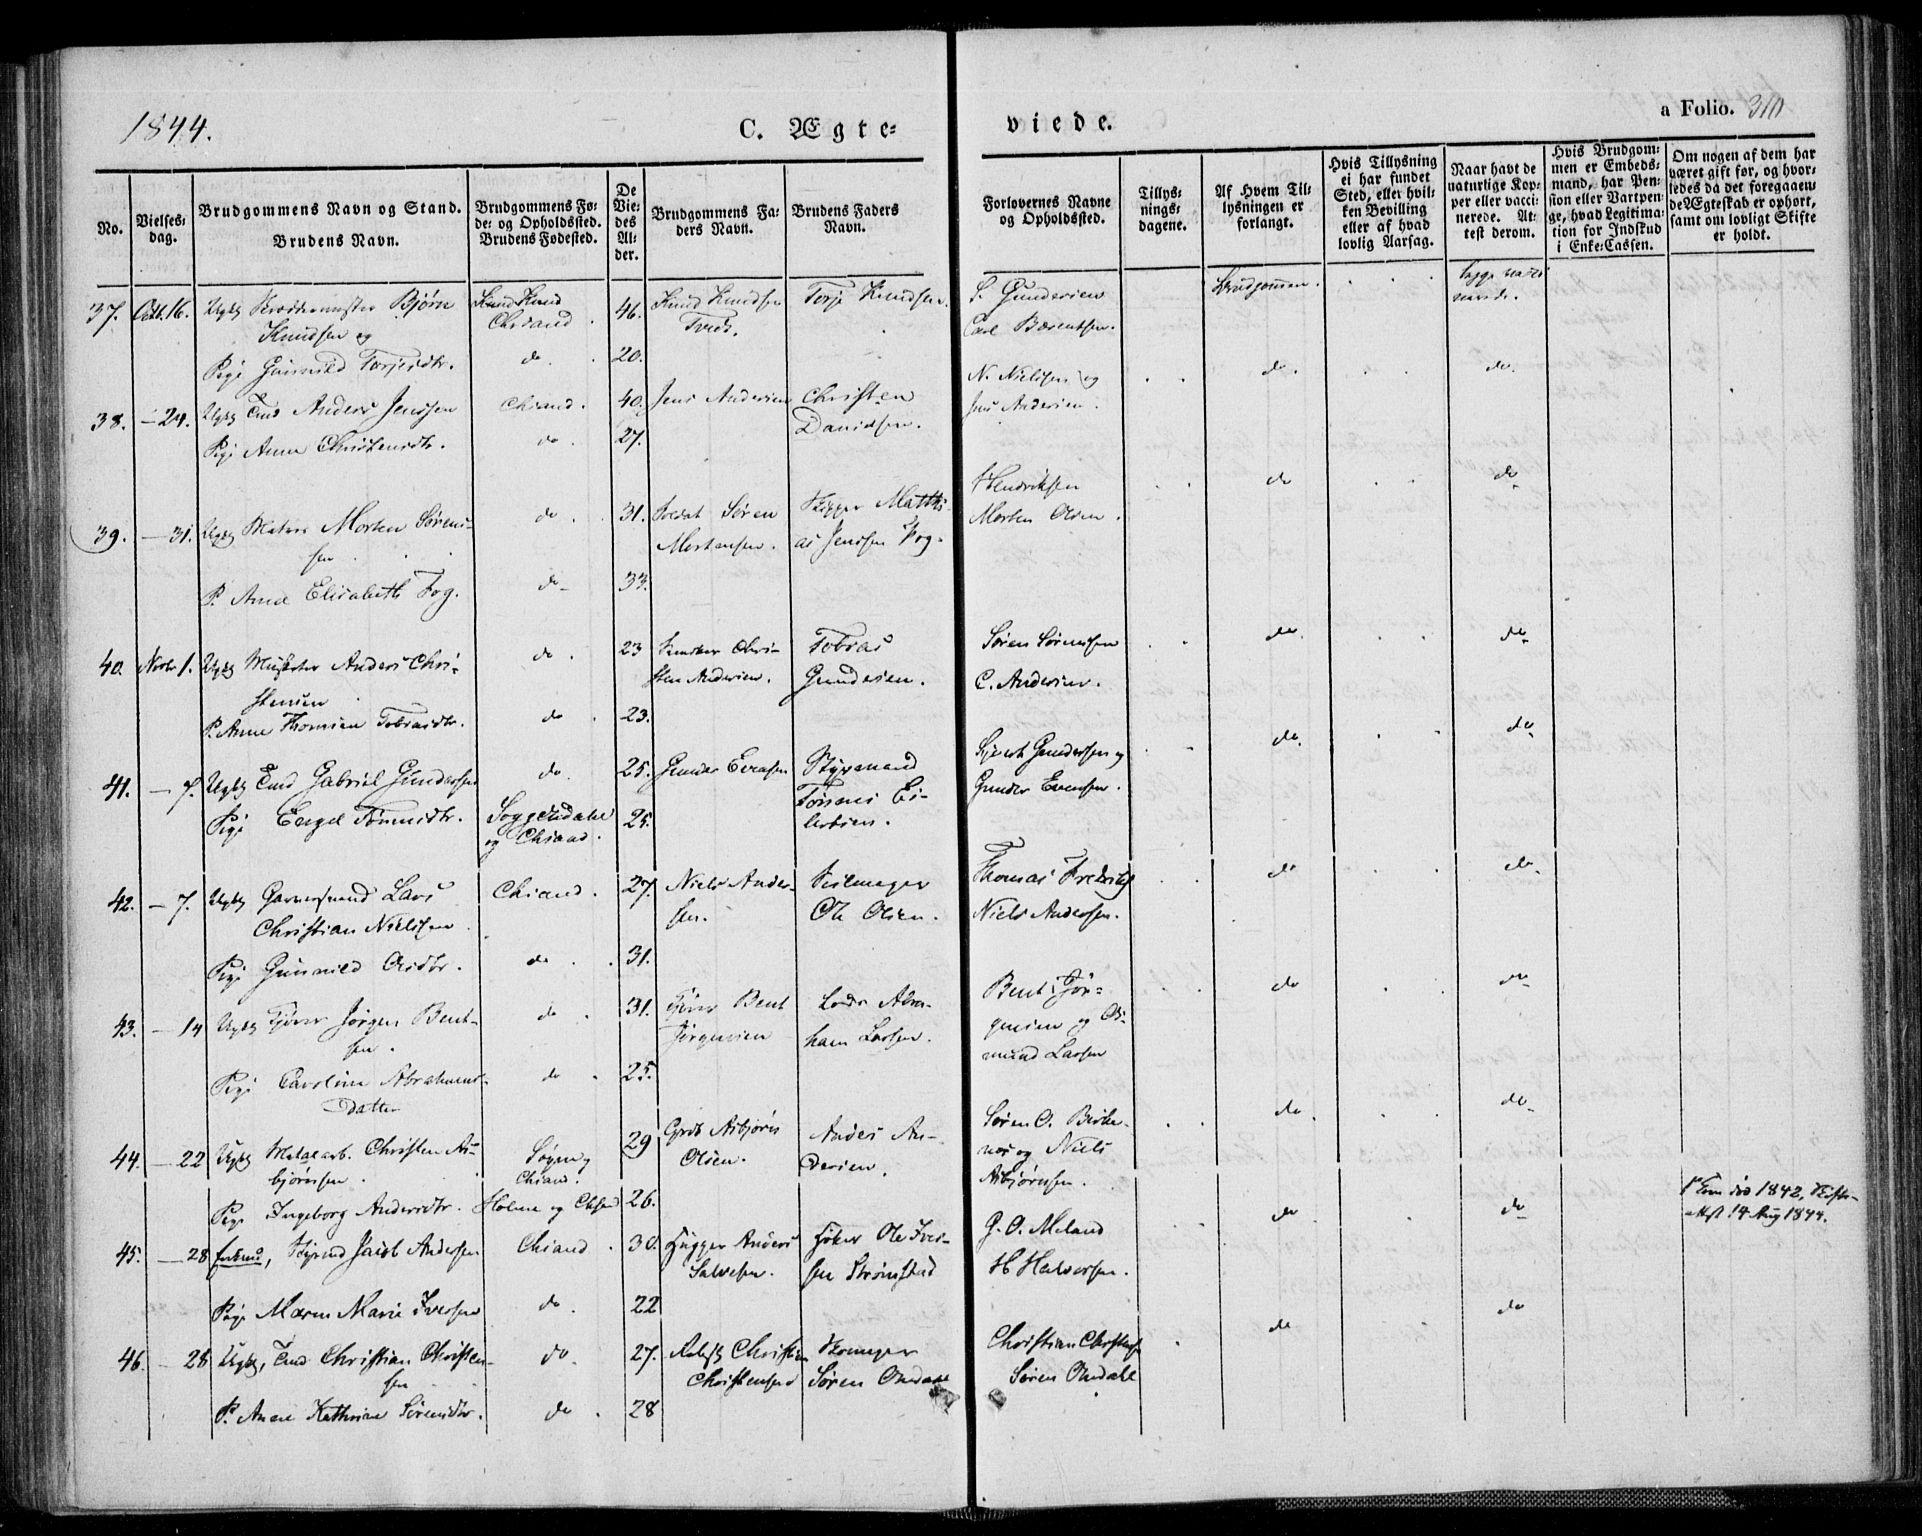 1844.
C. Ægte-
viede.
a Folio. 310
No.
Vielses-
dag.
Brudgommens Navn og Stand.
Brudens Navn.
Brudgommens Fø-
de- og Opholdssted.
Brudens Fødested.
De
Vie-
des
Al-
der.
Brudgommens Fa-
ders Navn.
Brudens Faders
Navn.
Forlovernes Navne
og Opholdssted.
Tillys-
nings-
dagene.
Af Hvem Til-
lysningen er
forlangt.
Hvis Tillysning
ei har fundet
Sted, eller hvil-
ken Bevilling
eller af hvad
lovlig Aarsag.
Naar havt de
naturlige Kop-
per eller vacci-
nerede. At-
test derom.
Hvis Brudgom-
men er Embeds-
mand, har Pen-
sion eller Vartpen-
ge, hvad Legitima-
tion for Indskud
i Enke-Cassen.
Om nogen af dem har
været gift før, og hvor-
ledes da det foregaaen-
de Ægteskab er ophørt,
samt om lovligt Skifte
er holdt.
37. Octb. 16. Ugkl Bjørn
Knudsen og
Chsand. 46. Knud Knudsen
Tveds.
Torje Knudsen.
S. Gundersen
Carl Børentsen.
Brudgommen.
Pige Gunnild Torjesdtr. do. 20.
38. – 24. Ugkl Tmd Anders Jenssen Chsand. 40. Jens Andersen Christen
Davidsen.
N. Nielsen og
Jens Andersen.
do. do.
Pige Anne Christensdtr. do. 27.
39. – 31. Ugkl Matros Morten Sørens-
sen
do. 31. Søren
Mortensen.
Skipper Matthi-
as Jenssen Fog.
Hendriksen
Morten Olsen.
do do
P. Anne Elisabeth Fog. do 33.
40. Novbr 1. Ugkl Anders Chri-
stensen
do. 23 Chri-
sten Andersen.
Tobias
Gundersen.
Søren Sørenssen
C. Andersen.
do do
P. Anne Thomine Tobiasdtr. do 23.
41. – 7. Ugkl Tmd Gabriel Gundersen do. 25. Gunder Evensen Styrmand
Tønnes Ei-
lertsen.
Sivert Gundersen og
Gunder Evensen.
do. do
Pige Engel Tønnesdtr. Soggendalen
og Chsand.
25.
42. – 7. Ugkl Lars
Christian Nielssen
Chsand. 27. Niels Ander-
sen.
Seilmager
Ole Olsen.
Thomas Fredriks
Niels Andersen.
do do.
Pige Gunnild Olsdtr. do. 31.
43. – 14 Ugkl Jørgen Bent-
sen.
do. 31. Bent
Jørgensen
Lods Abra-
ham Larsen.
Bent Jør-
gensen og Os-
mund Larsen
do do
Pige Caroline Abrahams-
datter
do 25.
44. – 22 Ugkl Christen As-
bjørnsen.
Søgne og
Chsand.
29 Asbjørn
Olsen.
Anders An-
dersen.
Søren O. Birke-
nes og Niels
Asbjørnsen.
do. do
Pige Ingeborg Andersdtr. Holme og Chsand 26.
45. – 28 Enkmd, Styrmd Jacob Andersen Chsand. 30. Anders
Salvesen.
Høker Ole Iver-
sen Strømstad
G. O. Meland
H Halvorsen.
do do
død 1842, Skifte-
attest 14 Aug 1844.
Pige Maren Marie Iversen do. 22
46. – 28 Ugkl, Tmd Christian Christen-
sen
do. 27. Christen
Christensen
Skomager
Søren Omdahl
Christian Christens
Søren Omdahl
do do
P. Anne Kathrine Sørensdtr. do. 28